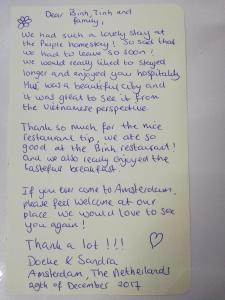 Dear Binh, Tinh and
family,
We had such a lovely stay at
the People homestay! So sad that
we had to leave so soon!
We would really liked to stayed
longer and enjoyed your hospitality
Hué was a beautiful city and
it was great to see it from
the Vietnamese perspective
Thank so much for the nice
restaurant tip, we ate so
good at the Binh restaurant!
And we also really enjoyed the
tastefull breakfast.
If you ever come to Amsterdam,
please feel welcome at our
place. We would love to see
you again!
Thank a lot!!!
Doeke & Sandra
Amsterdam, The Netherlands
29th of December 2017